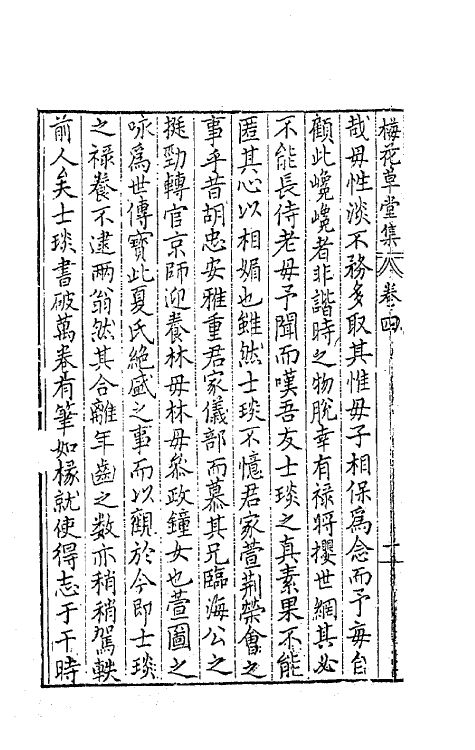 梅花草堂集 卷四 二十
哉毋性淡不務多取其惟毋子相保為念而予每自
顧此巉巉者非諧時之物脫幸有祿將攖世網其必
不能長侍老毋予聞而嘆吾友士琰之真素果不能
匿其心以相媚也雖然士琰不憶君家萱荆榮會之
事乎昔胡忠安雅重君家儀部而慕其兄臨海公之
挺勁轉官京師迎養林毋林毋叅政鐘女也萱圖之
咏為世傳寶此夏氏絶盛之事而以觀於今即士琰
之祿養不逮兩翁然其合離年齒之數亦稍稍駕軼
前人矣士琰書破萬卷有筆如椽就使得志于干時